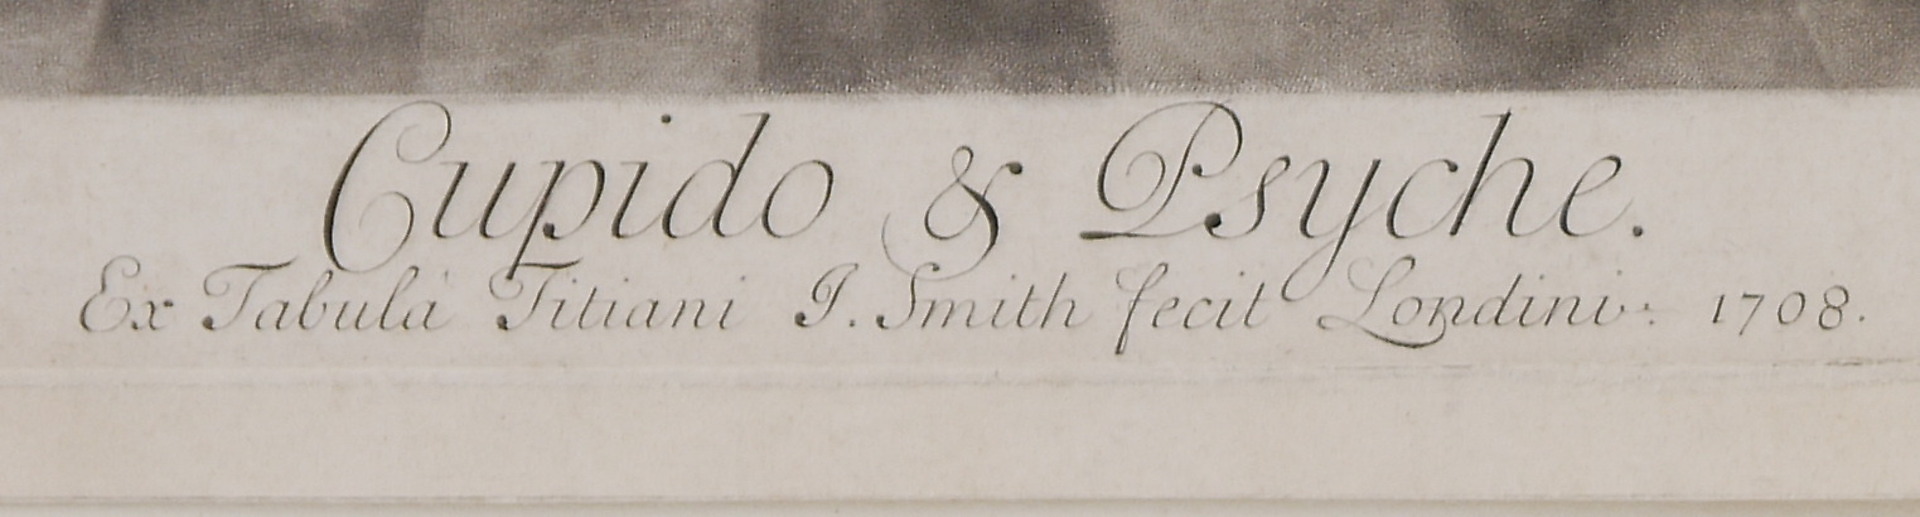 Cupido & Psyche.
Ex Tabulâ Titiani J. Smith fecit Londini: 1708.